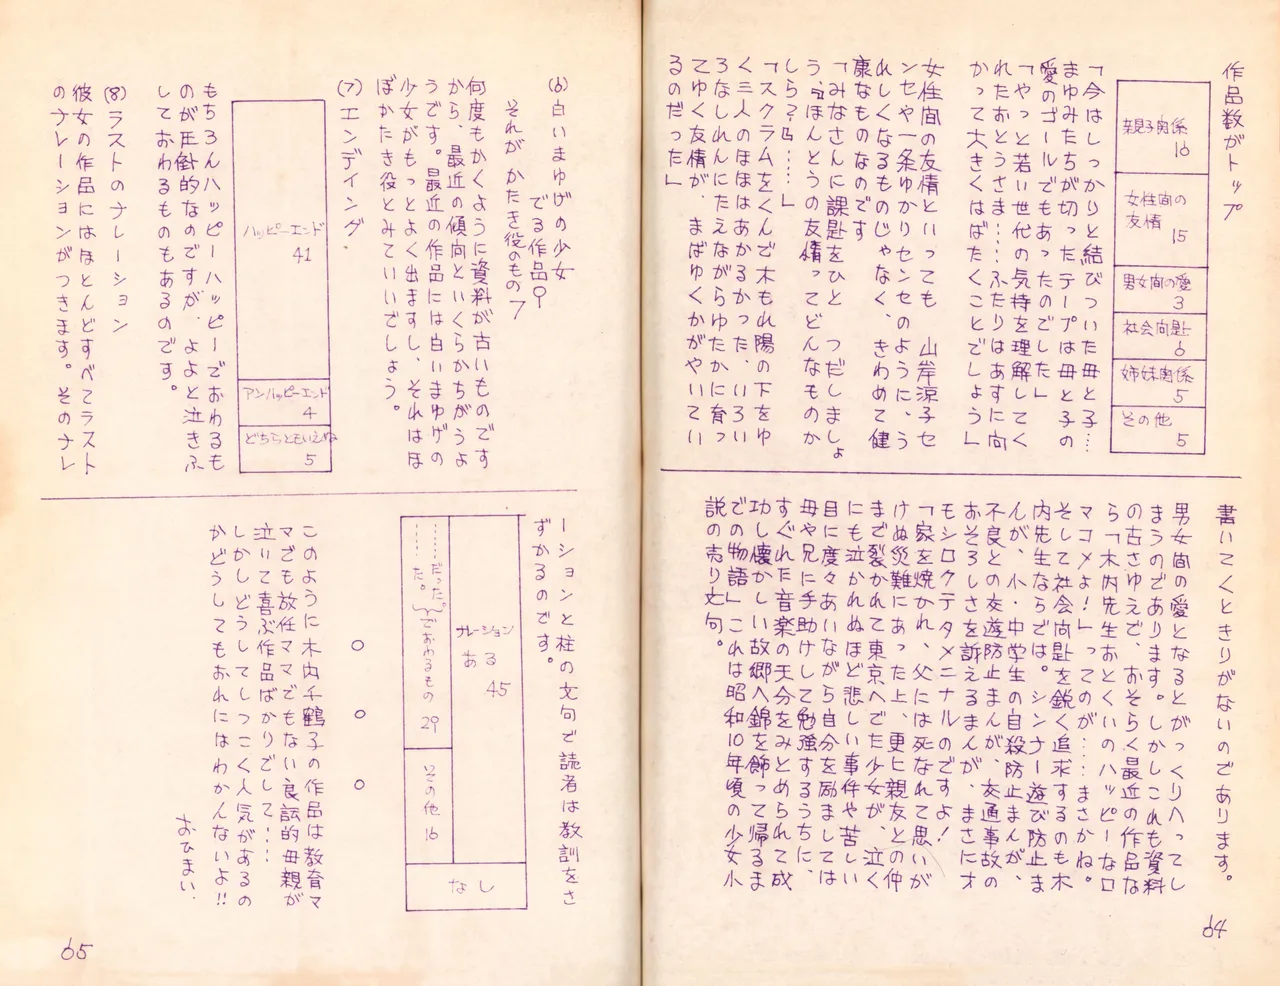 作品数がトップ
親子関係
16
女性間の
友情
15
男女間の愛
3
社会問題
6
姉妹関係
5
その他
5
「今はしっかりと結びついた母と子…
まゆみたちが切ったテープは母と子の
愛のゴールでもあったのでした」
「やっと若い世代の気持を理解してく
れたおとうさま……ふたりはあすに向
かって大きくはばたくことでしょう」
女性間の友情といっても　山岸涼子セ
ンセや一条ゆかりセンセのように、う
れしくなるものじゃなく、きわめて健
康なものなのです
「みなさんに課題をひと　つだしましょ
う、『ほんとうの友情ってどんなものか
しら？』……」
「スクラムをくんで木もれ陽の下をゆ
く三人のほほはあかるかった、いろい
ろなしれんにたえながらゆたかに育っ
てゆく友情が、まばゆくかがやいてい
るのだった」
書いてくときりがないのであります。
男女間の愛となるとがっくりへってし
まうのであります。しかしこれも資料
の古さゆえで、おそらく最近の作品な
ら「木内先生おとくいのハッピーなロ
マコメよ！」ってのが……まさかね。
そして社会問題を鋭く追求するのも木
内先生ならでは。シンナー遊び防止ま
んが、小・中学生の自殺防止まんが、
不良との交遊防止まんが、交通事故の
おそろしさを訴えるまんが、まさにオ
モシロクテタメニナルのですよ！
「家を焼かれ、父には死なれて思いが
けぬ災難にあった上、更に親友との仲
まで裂かれて東京へでた少女が、泣く
にも泣かれぬほど悲しい事件や苦しい
目に度々あいながら自分を励ましては
母や兄に手助けして勉強するうちに、
すぐれた音楽の天分をみとめられて成
功し懐かしい故郷へ錦を飾って帰るま
での物語」これは昭和10年頃の少女小
説の売り文句。
64
(6)白いまゆげの少女
でる作品 9
それが　かたき役のもの 7
何度もかくように資料が古いものです
から、最近の傾向といくらかちがうよ
うです。最近の作品には白いまゆげの
少女がもっとよく出ますし、それはほ
ぼかたき役とみていいでしょう。
(7)エンディング
ハッピーエンド
41
アンハッピーエンド
4
どちらともいえぬ
5
もちろんハッピーハッピーでおわるも
のが圧倒的なのですが、よよと泣きふ
しておわるものもあるのです。
(8)ラストのナレーション
彼女の作品にはほとんどすべてラスト
のナレーションがつきます。そのナレ
ーションと柱の文句で読者は教訓をさ
ずかるのです。
ナレーション
ある
45
……だった。
……た。
でおわるもの 29
その他 16
なし
○　○　○
このように木内千鶴子の作品は教育マ
マでも放任ママでもない良識的母親が
泣いて喜ぶ作品ばかりでして……
しかしどうしてしつこく人気があるの
かどうしてもおれにはわかんないよ!!
おひまい.
65